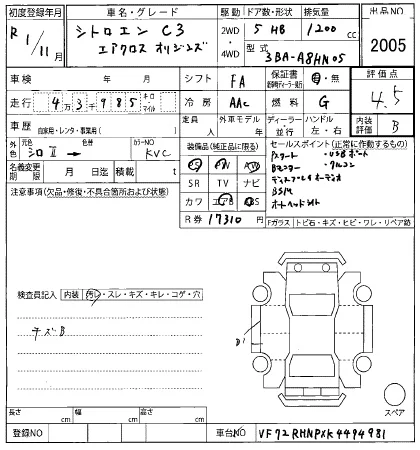 初度登録年月 車名・グレード 駆動 ドア数・形状 排気量 出品NO
R 1/11月 シトロエン C3 2WD 5 HB 1200 cc 2005
エアクロス オリジンズ 4WD 型式 3BA-A8HN05
車検 年 月 シフト FA 保証書 有・無 評価点
走行 4万3千985 キロ・マイル 冷房 AAC 燃料 G 4.5
車歴 自家用・レンタ・事業用( ) 定員 人 外車モデル 年 ディーラー・並行 ハンドル 左・右 内装 B
外色 元色 シロII → 色替 カラーNO KVC 装備品(純正品に限る) セールスポイント(正常に作動するもの)
名義変更期限 月 日迄 積載 t SR TV ナビ
注意事項(欠品・修復・不具合箇所および状態) カワ エアB ABS
R券 17310 円
Pスタート ・USBポート
Bモニター ・クルコン
ディスプレイオーディオ
BSM
オートヘッドライト
Fガラス トビ石・キズ・ヒビ・ワレ・リペア跡
検査員記入 内装 汚レ・スレ・キズ・キレ・コゲ・穴
キズB
スペア
長さ cm 幅 cm 高さ cm
登録NO 車台NO VF72RHNPXK4494981